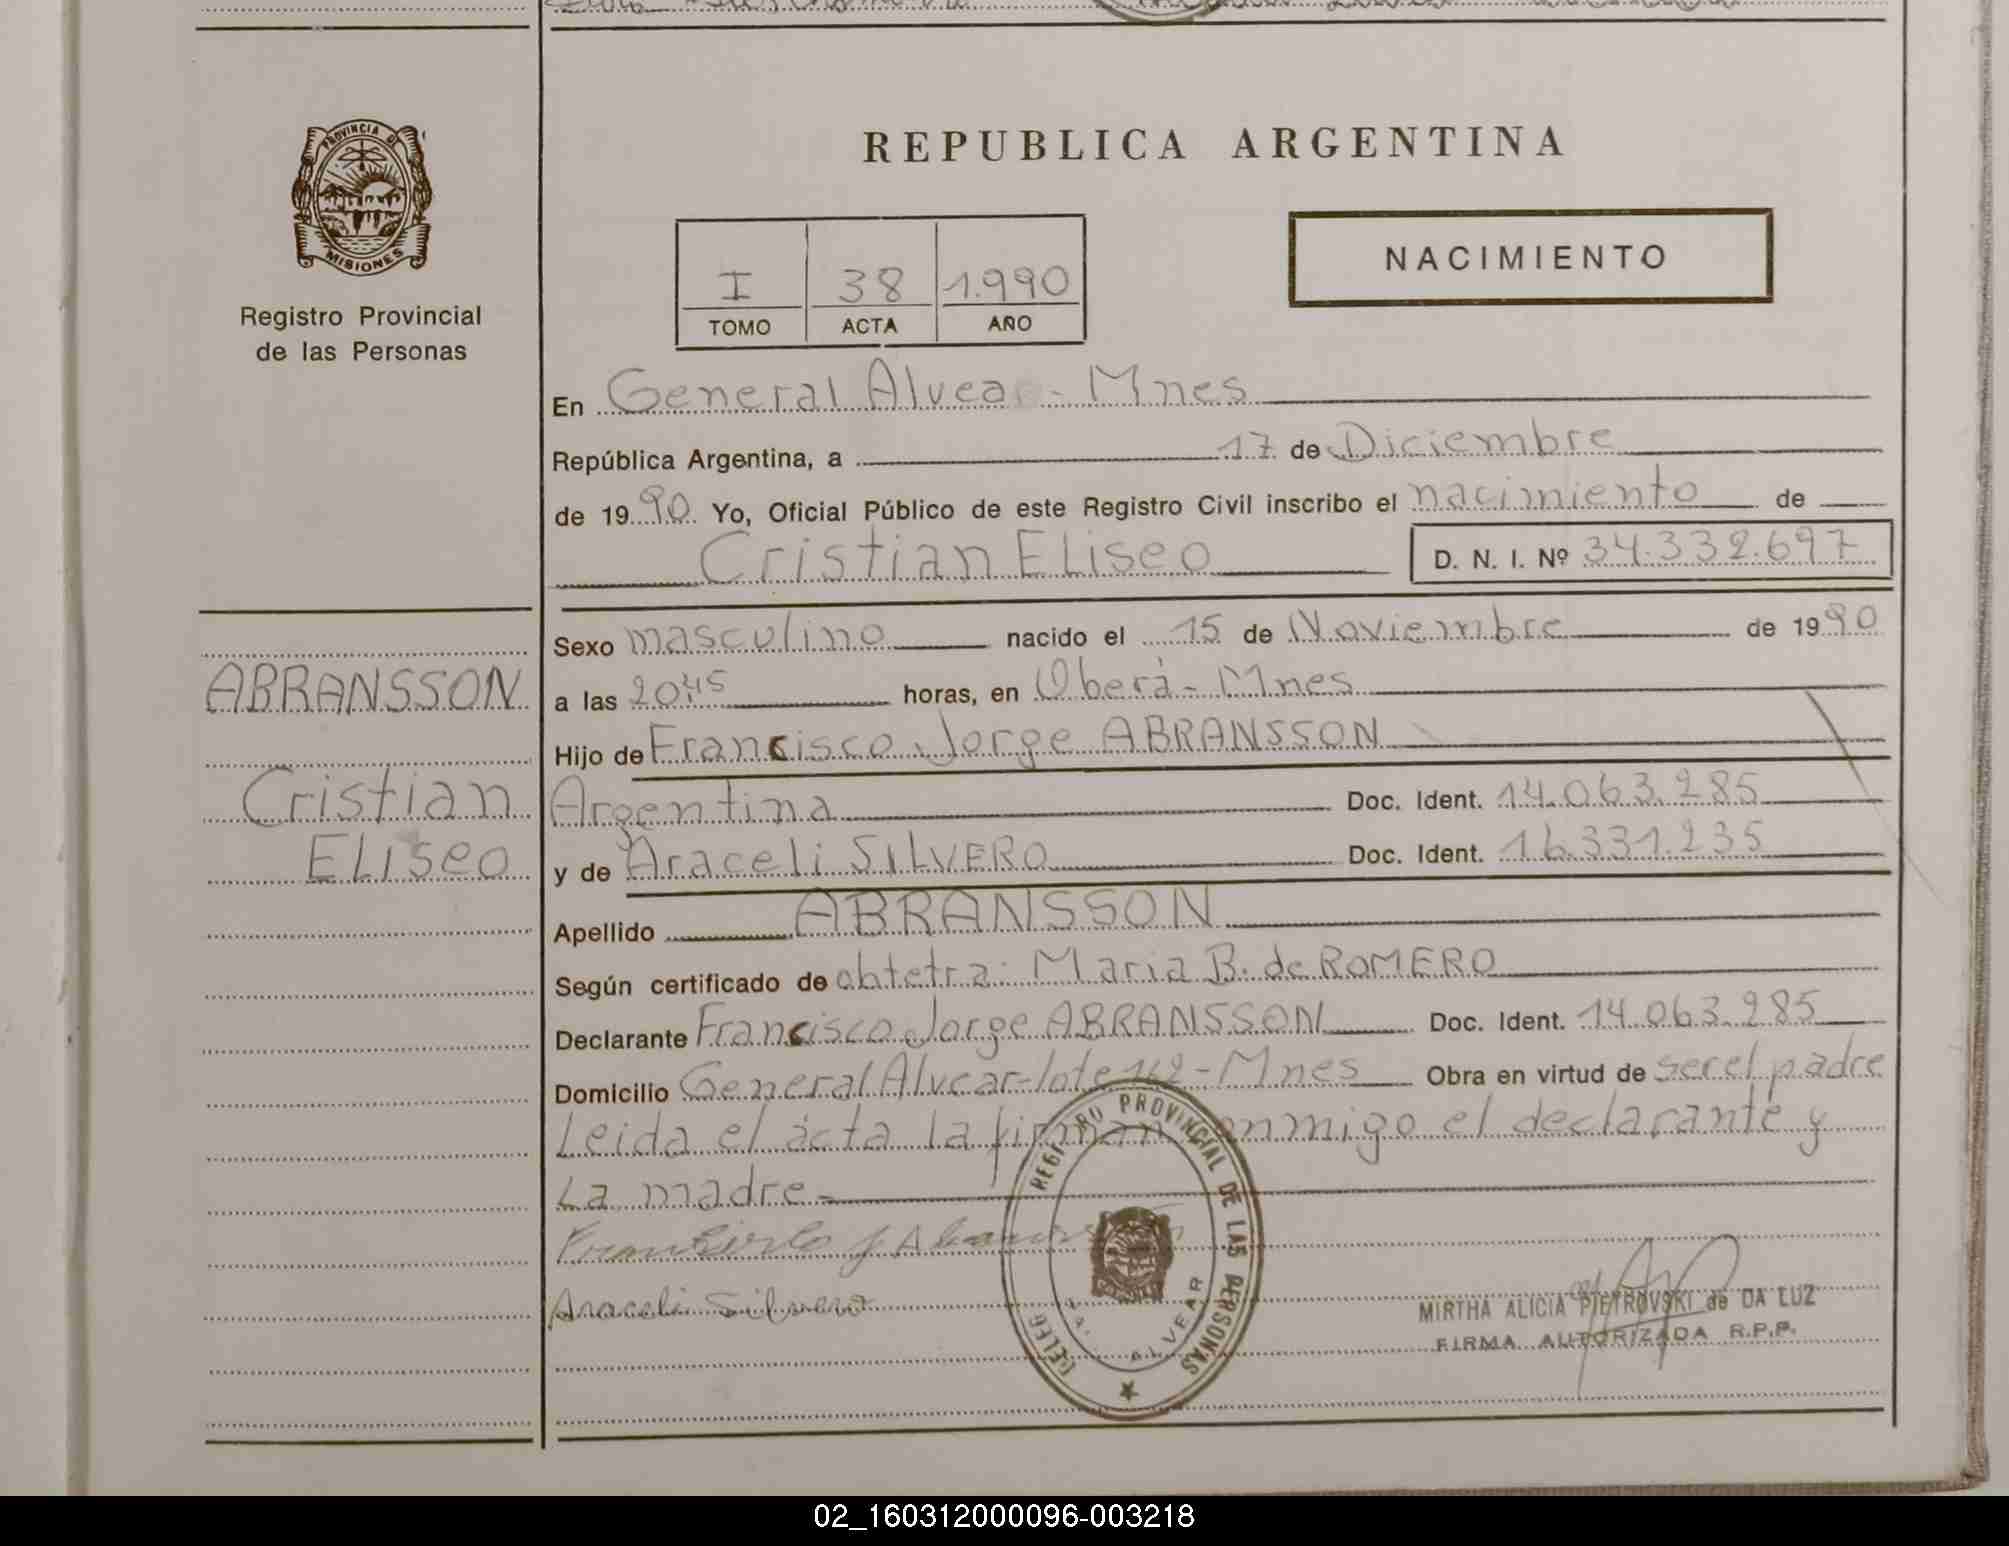 PROVINCIA DE
MISIONES
Registro Provincial
de las Personas
REPUBLICA ARGENTINA
I 38 1.990
TOMO ACTA AÑO
NACIMIENTO
En General Alvea - Mnes
República Argentina, a 17 de Diciembre
de 1990 Yo, Oficial Público de este Registro Civil inscribo el nacimiento de
Cristian ELiseo D. N. I. Nº 34.332.697
Sexo masculino nacido el 15 de Noviembre de 1990
ABRANSSON
a las 20,45 horas, en Oberá - Mnes
Hijo de Francisco Jorge ABRANSSON
Cristian
Argentina Doc. Ident. 14.063.285
ELiseo
y de Araceli SILVERO Doc. Ident. 16.331.235
Apellido ABRANSSON
Según certificado de obtetra: Maria B. de ROMERO
Declarante Francisco Jorge ABRANSSON Doc. Ident. 14.063.285
Domicilio General Alvear - lote 162 - Mnes Obra en virtud de ser el padre
Leida el ácta la firman conmigo el declarante y
La madre
REGISTRO PROVINCIAL DE LAS PERSONAS
ALVEAR
Araceli Silvero
MIRTHA ALICIA PIETROVSKI de DA LUZ
FIRMA AUTORIZADA R.P.P.
02_160312000096-003218